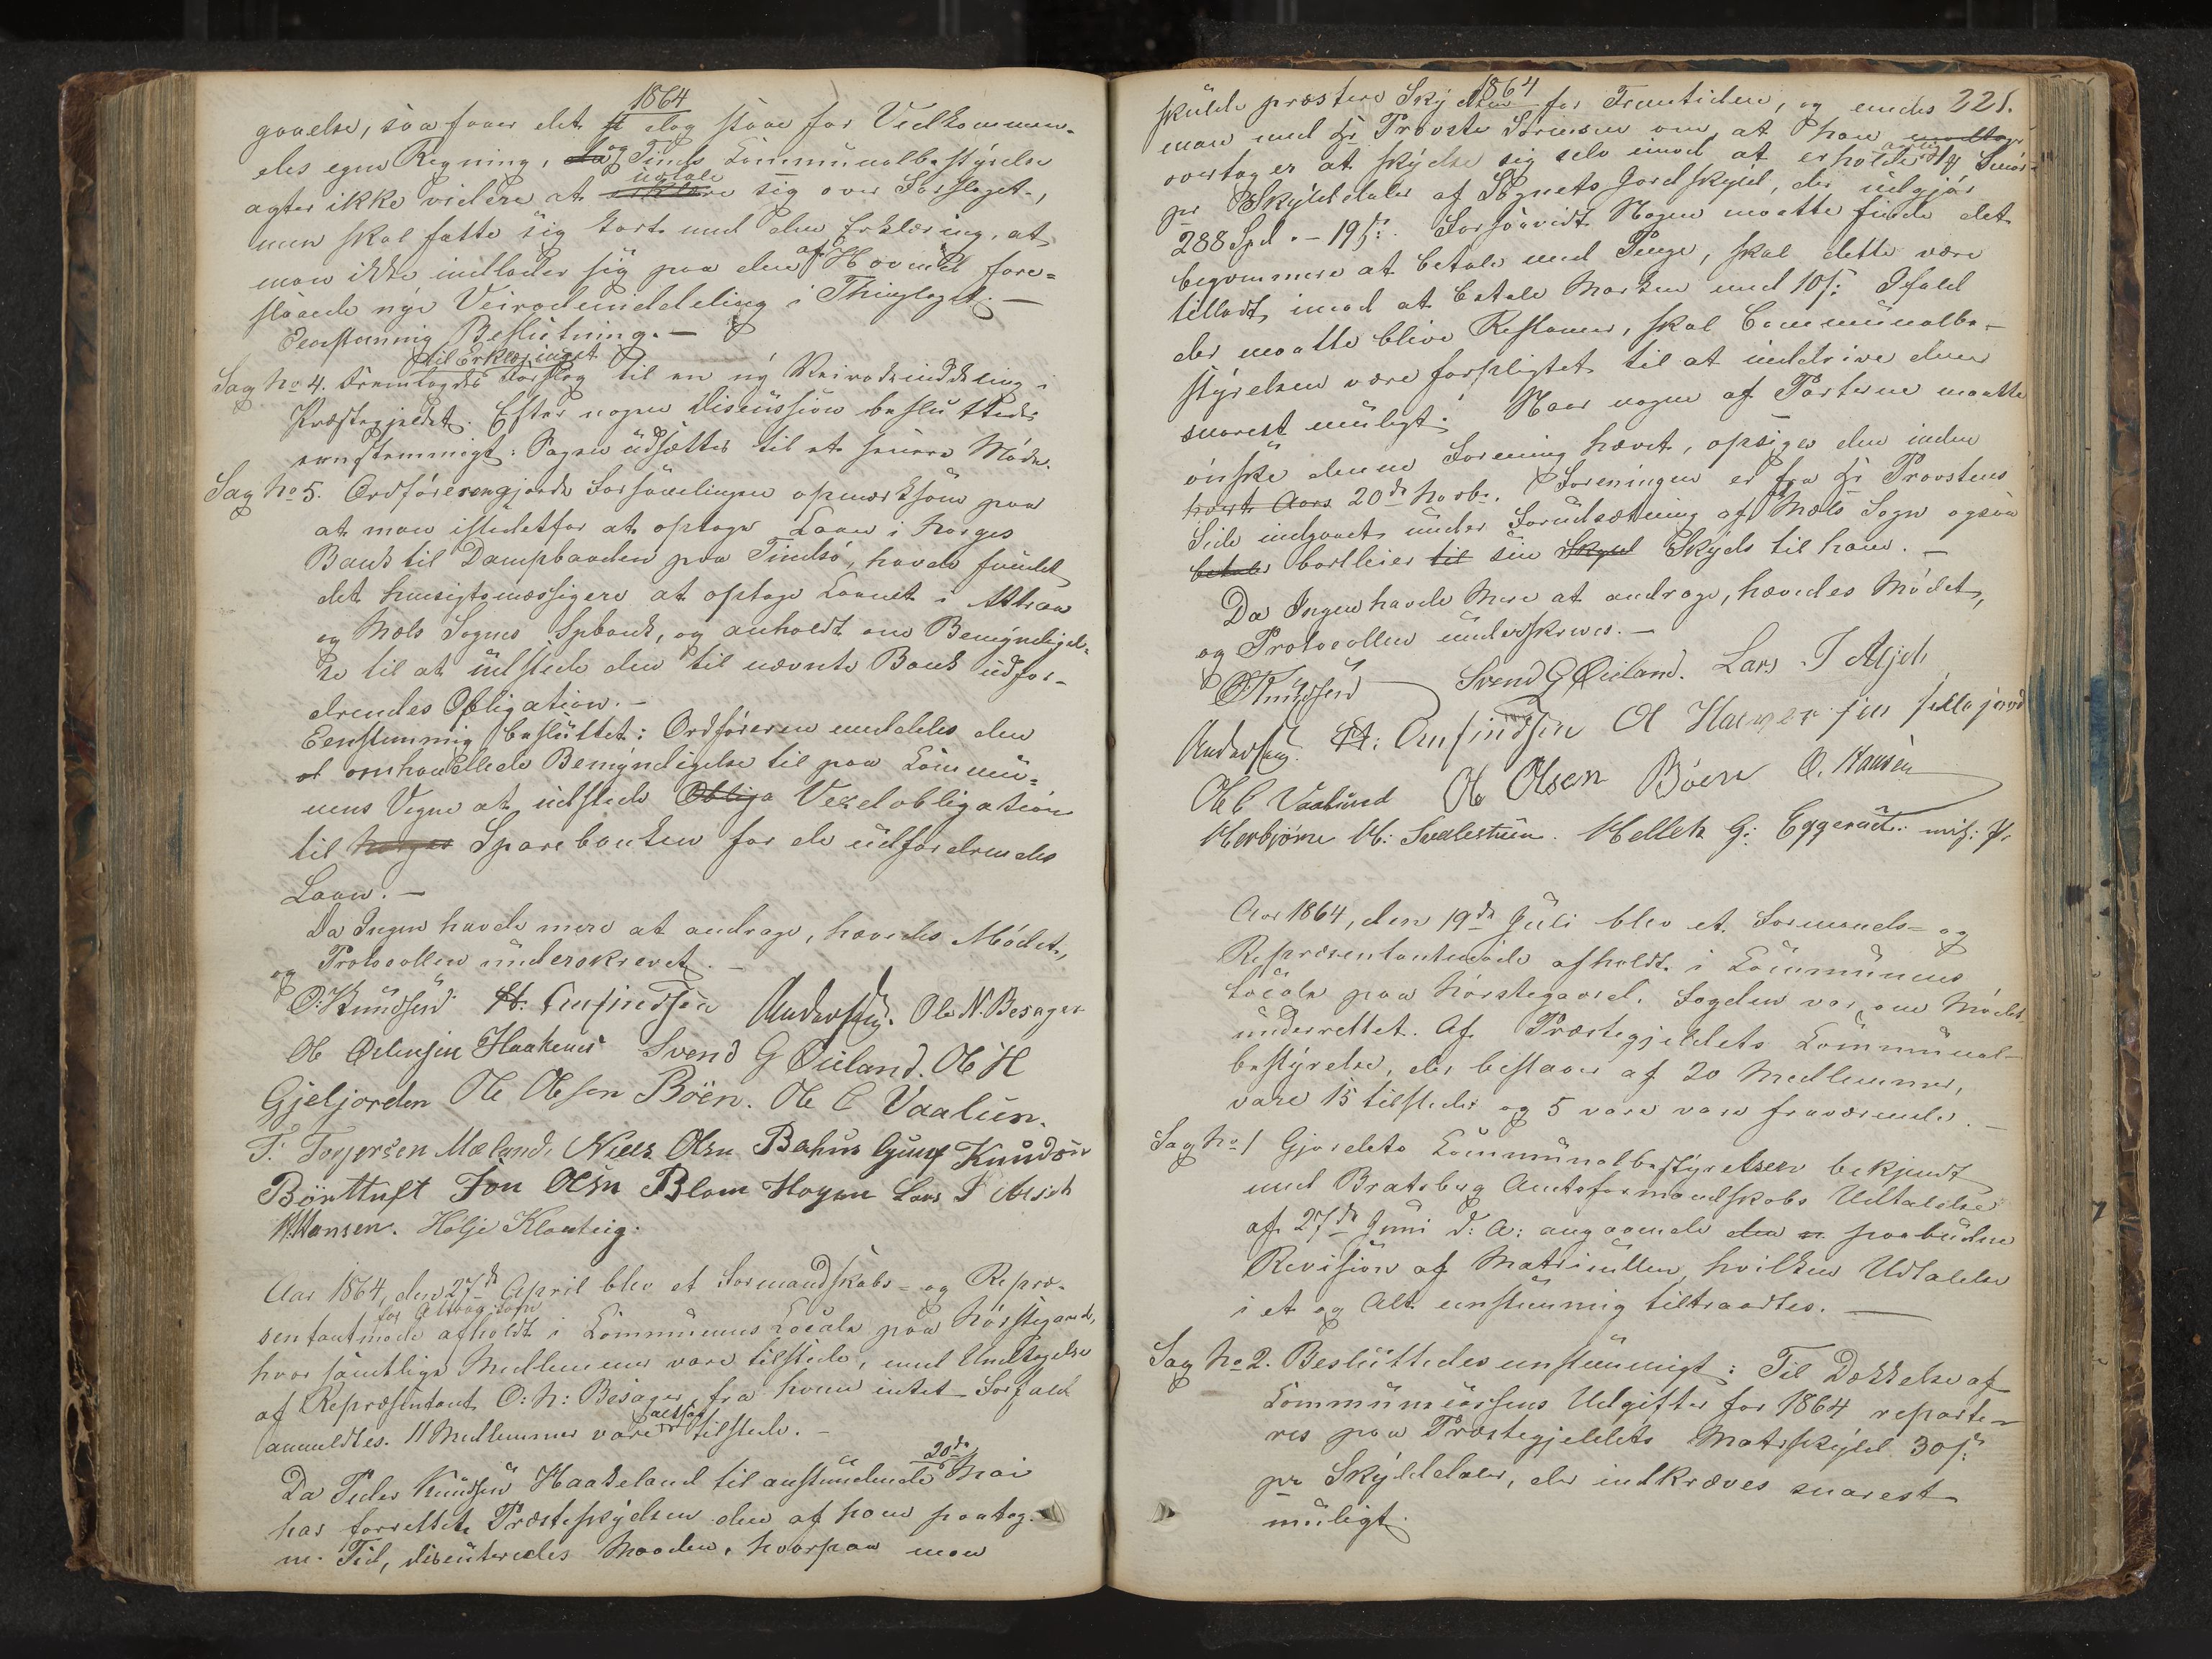 1864
gaaelse, saa faar det st dog staae for Vedkommen-
des egen Regning, da og Tinds Communalbestyrelse
agter ikke videre at erklære udtale sig over Forslaget,
men skal fatte sig kort med den Erklæring, at
man ikke indlader sig paa den af Hovind fore-
slaaede nye Veirodeinddeling i Thinglaget. —
Eenstemmig Beslutning. —
til Erklæringst
Sag No 4. Fremlagdes Forslag til en ny Veirodeinddeling i
Præstegjeldet. Efter nogen Discussion besluttedes
eenstemmigt: Sagen udsættes til et senere Møde.
Sag No 5. Ordføreren gjorde Forsamlingen opmærksom paa
at man istedetfor at optage Laan i Norges
Bank til Dampbaaden paa Tindsø, havde fundet
det hensigtsmæssigere at optage Laanet i Attraa
og Mæls Sognes Spbank, og anholdt om Bemyndigel-
se til at udstede den til nævnte Bank udfor-
drendes Obligation. —
Eenstemmig besluttet: Ordføreren meddeles den
omhandlede Bemyndigelse til paa Commu-
nens Vegne at udstede Obliga Vexelobligation
til Norges Sparebanken for de udfordrendes
Laan. —
Da Ingen havde mere at andrage, hævedes Mødet,
og Protocollen underskrevet. —
O: Knudsen H. Anfindsen Andersen. Ole N. Besager
Ole Østensen Haakenes Svend G Øieland. Ole H
Gjeljorden Ole Olsen Böen. Ole C Vaalun.
T. Torjersen Mæland. Niels Olsn Bakhus Gunf Knudsn
Börttuft Jon Olsn Blom Hogan Lars J Aasch
H. Hansen. Halje Klonteig.
Aar 1864, den 27de April blev et Formandskabs- og Repræ-
sentantmøde for Attraa Sogn afholdt i Communens Locale paa Hørstegaard,
hvor samtlige Medlemmer vare tilstede, med Undtagelse
af Repræsentant O: N: Besager, fra hvem intet Forfald
anmeldtes. 11 Medlemmer vare altsaa tilstede. —
Da Peder Knudsen Haakeland til anstundende 20de Mai
har forrettet Præsteskydsen den af ham paatag-
ne Tid, discuteredes Maaden, hvorpaa man
1864
221.
skulde præstere Skydsen for Fremtiden, og enedes
man med Hr Provste Sörensen om, at han modtage
overtager at skydse sig selv imod at erholde aarlig 1 ℔ Smør
pr Skylddaler af Sognets Jordskyld, der udgjør
288 Spd. - 19 s:. Forsaavidt Nogen maatte finde det
begvemmere at betale med Penge, skal dette være
tilladt imod at betale Marken med 10 s: Ifald
der maatte blive Restancer, skal Communalbe-
styrelsen være forpligtet til at inddrive dem
snarest muligt. Naar nogen af Parterne maatte
ønske denne Forening hævet, opsiges den inden
hvert Aars 20de Novbr. Foreningen er fra Hr Provstens
Side indgaaet under Forudsætning af Mæls Sogn ogsaa
betaler bortleier til sin Skyd Skyds til ham. —
Da Ingen havde mere at andrage, hævedes Mødet,
og Protocollen underskreves. —
O Knudsen Svend G Øieland. Lars J Asjch
Andersen. H: Anfindsen Ol Haaversen
Ole C Vaalund Ole Olsen Böen O. Hansen
Herbjørn H: Svalestuen. Hellek G: Eggerud: m: f: P:
Aar 1864, den 19de Juli blev et Formands- og
Repræsentantmøde afholdt i Communens
Locale paa Hørstegaard. Fogden var om Mødet
underrettet. Af Præstegjeldets Communal-
bestyrelse, der bestaaer af 20 Medlemmer,
vare 15 tilstede og 5 vare vare fraværende. —
Sag No 1 Gjordets Communalbestyrelsen bekjendt
med Bratsberg Amtsformandskabs Udtalelse
af 27de Juni d: A: angaaende den n paabudne
Revision af Matriculen, hvilken Udtalelse
i et og Alt eenstemmig tiltraadtes. —
Sag No 2. Besluttedes eenstemmigt: Til Dækkelse af
Communecassens Udgifter for 1864 reparte-
res paa Præstegjeldets Matrskyld 30 s:
pr Skylddaler, der indkræves snarest
muligt.